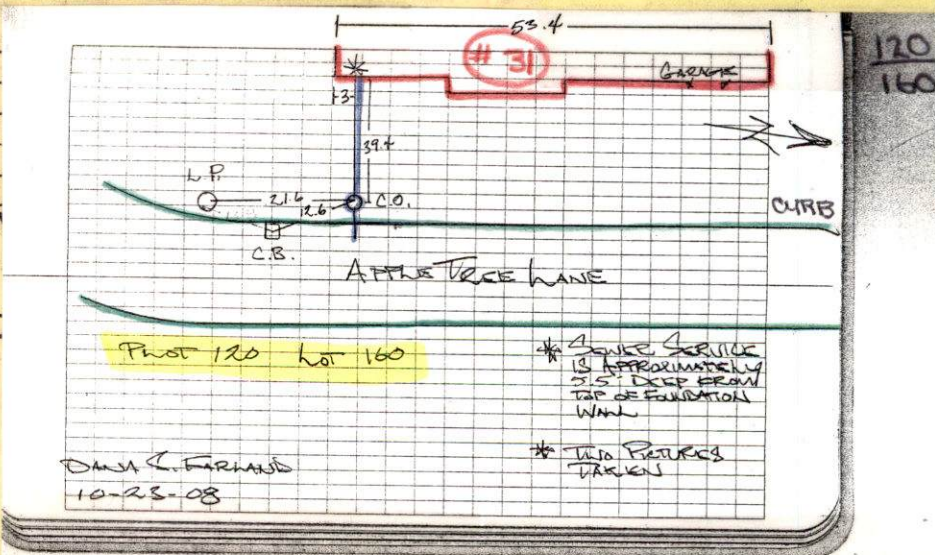 53.4
# 31
120
160
GARAGE
3
39.4
L.P.
21.6
12.6
C.O.
CURB
C.B.
APPLE TREE LANE
PLOT 120 LOT 160
* SEWER SERVICE
IS APPROXIMATELY
5.5' DEEP FROM
TOP OF FOUNDATION
WALL
* TWO PICTURES
TAKEN
DANA E. FARLAND
10-23-08